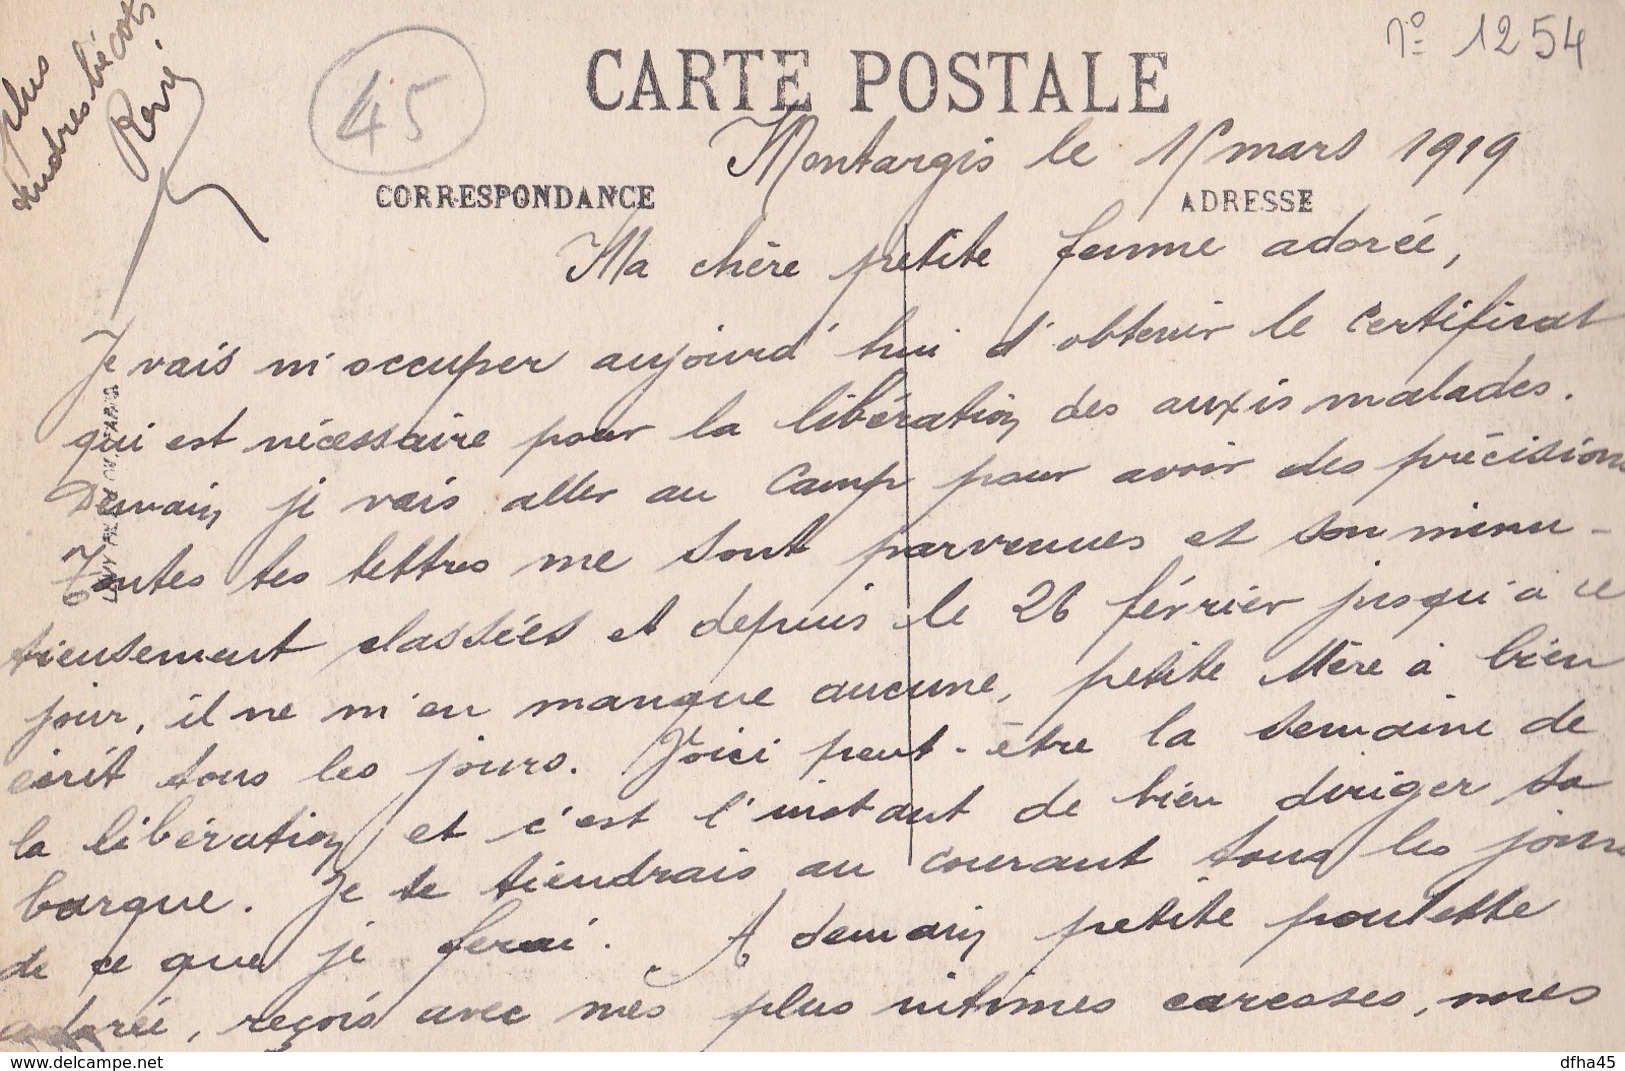 N° 1254
45
CARTE POSTALE
Montargis le 15 mars 1919
CORRESPONDANCE
ADRESSE
Ma chère petite femme adorée,
Je vais m'occuper aujourd'hui d'obtenir le certificat
qui est nécessaire pour la libération des auxis malades.
Demain je vais aller au Camp pour avoir des précisions
Toutes tes lettres me sont parvenues et son minu-
tieusement classées et depuis le 26 février jusqu'à ce
jour, il ne m'en manque aucune, petite Mère à bien
écrit tous les jours. Voici peut-être la semaine de
la libération et c'est l'instant de bien diriger sa
barque. Je te tiendrais au courant tous les jours
de ce que je ferai. A demain petite poulette
adorée, reçois avec mes plus intimes caresses, mes
plus
tendres bécots
René
dfha45